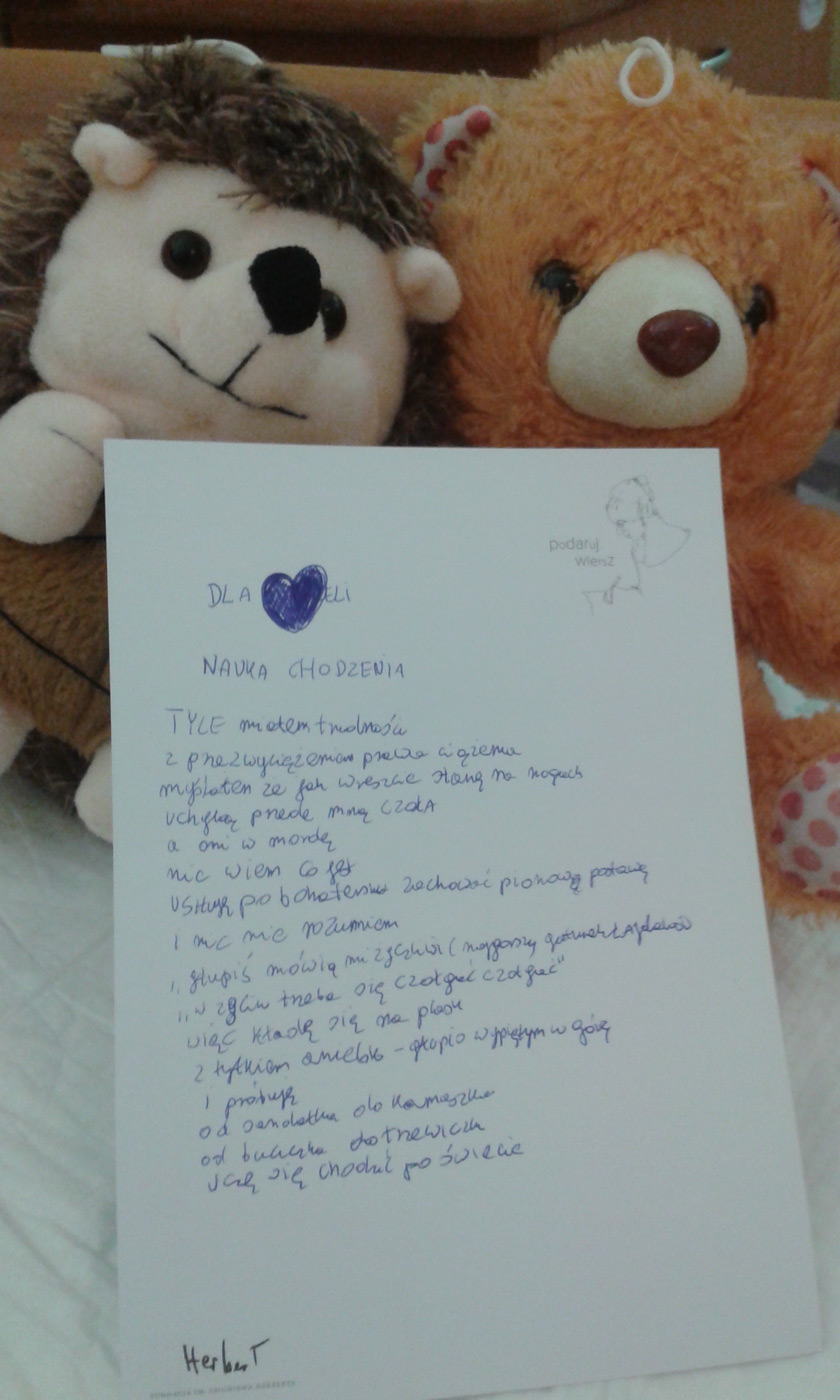 podaruj
wiersz
DLA ELI
NAUKA CHODZENIA
TYLE miałem trudności
z przezwyciężeniem prawa ciążenia
myślałem że jak wreszcie stanę na nogach
uchylą przede mną czoła
a oni w mordę
nic wiem co jest
usiłuję po bohatersku zachować pionową postawę
i nic nie rozumiem
„głupiś" mówią mi życzliwi (najgorszy gatunek łajdaków
„w życiu trzeba się czołgać czołgać"
więc kładę się na płask
z tyłkiem anielsko - głupio wypiętym w górę
i próbuję
od sandałka do kamaszka
od buciczka do trzewiczka
uczę się chodzić po świecie
Herbert
FUNDACJA IM. ZBIGNIEWA HERBERTA